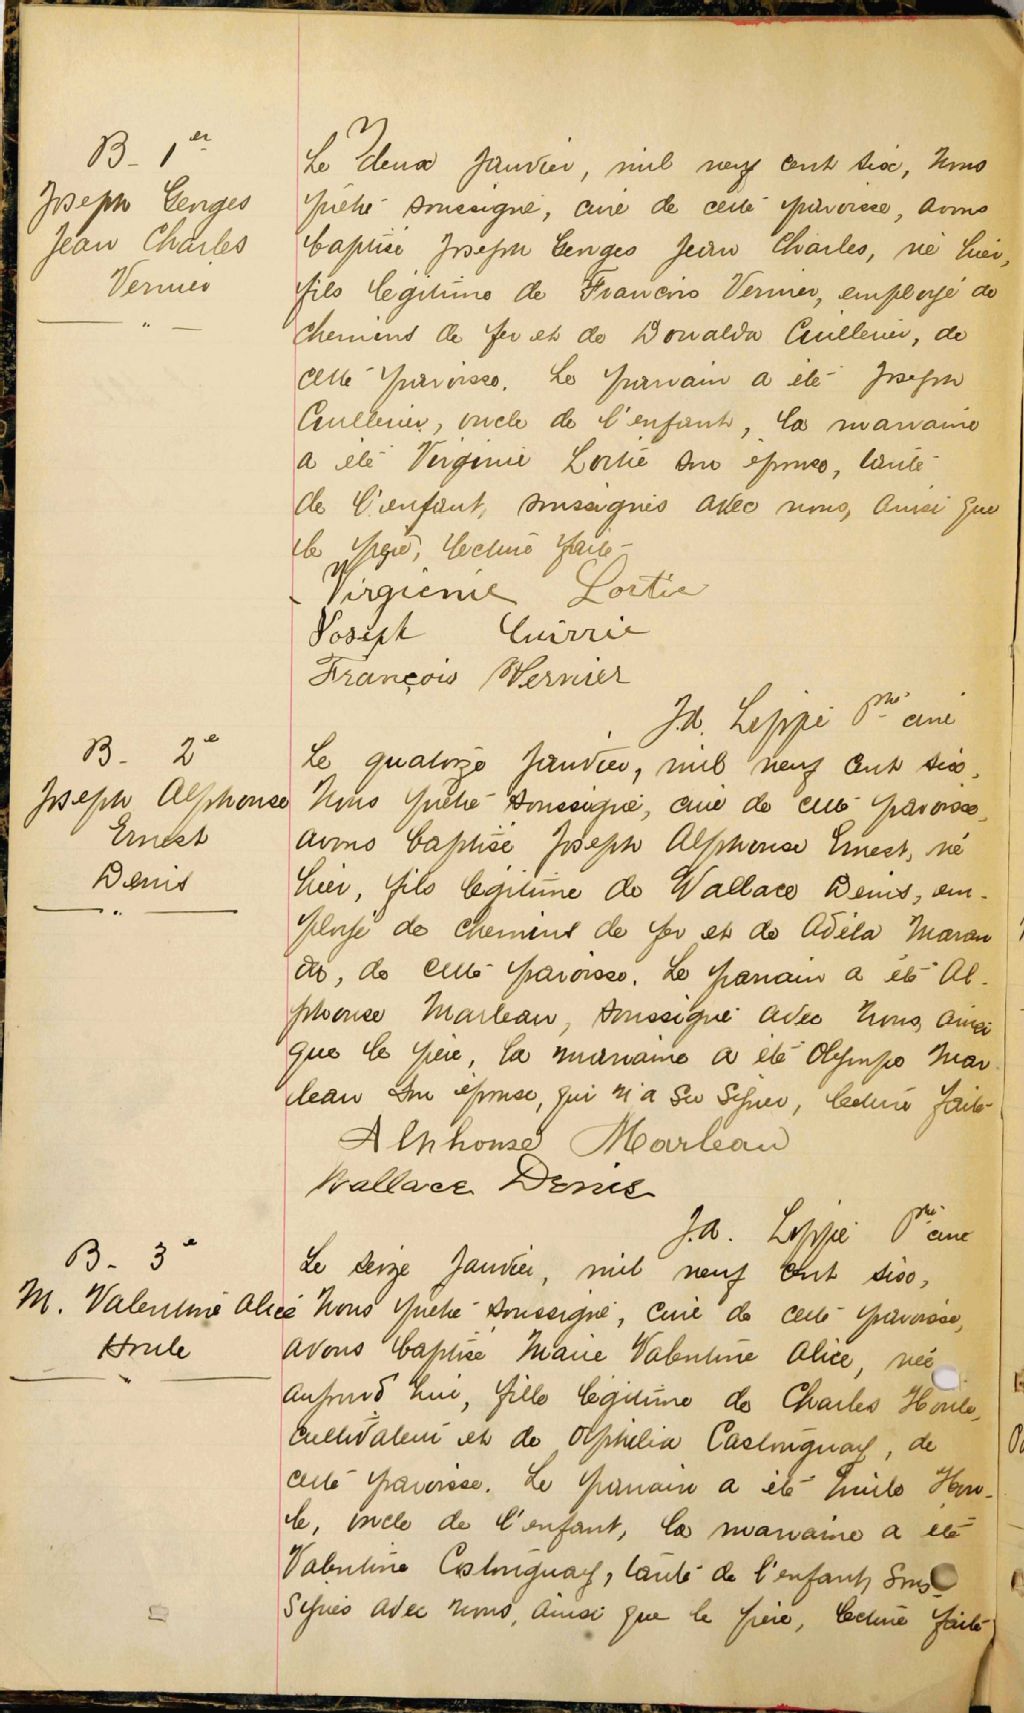 B- 1er
Joseph Georges
Jean Charles
Vernier
Le deux Janvier, mil neuf cent six, Nous
prêtre soussigné, curé de cette paroisse, avons
baptisé Joseph Georges Jean Charles, né hier,
fils légitime de François Vernier, employé de
chemins de fer et de Donalda Cuillerier, de
cette paroisse. Le parrain a été Joseph
Cuillerier, oncle de l'enfant, la marraine
a été Virginie Lortie son épouse, tante
de l'enfant, soussignés avec nous, ainsi que
le père, lecture faite
Virgienie Lortie
Joseph Cuirrie
François Vernier
J.A. Lippé Ptre curé
B- 2e
Joseph Alphonse
Ernest
Denis
Le quatorze Janvier, mil neuf cent six,
Nous prêtre soussigné, curé de cette paroisse,
avons baptisé Joseph Alphonse Ernest, né
hier, fils légitime de Wallace Denis, em-
ployé de chemins de fer et de Adéla Maran
da, de cette paroisse. Le parrain a été Al-
phonse Marleau, soussigné avec nous, ainsi
que le père, la marraine a été Olympe Mar
leau son épouse, qui n'a su signer, lecture faite
Alphonse Marleau
Wallace Denis
J.A. Lippé Ptre curé
B- 3e
M. Valentine Alice
Houle
Le seize Janvier, mil neuf cent six,
Nous prêtre soussigné, curé de cette paroisse,
avons baptisé Marie Valentine Alice, née
aujourd'hui, fille légitime de Charles Houle,
cultivateur et de Orphilia Castonguay, de
cette paroisse. Le parrain a été Emile Hou-
le, oncle de l'enfant, la marraine a été
Valentine Castonguay, tante de l'enfant, sous-
signés avec nous, ainsi que le père, lecture faite